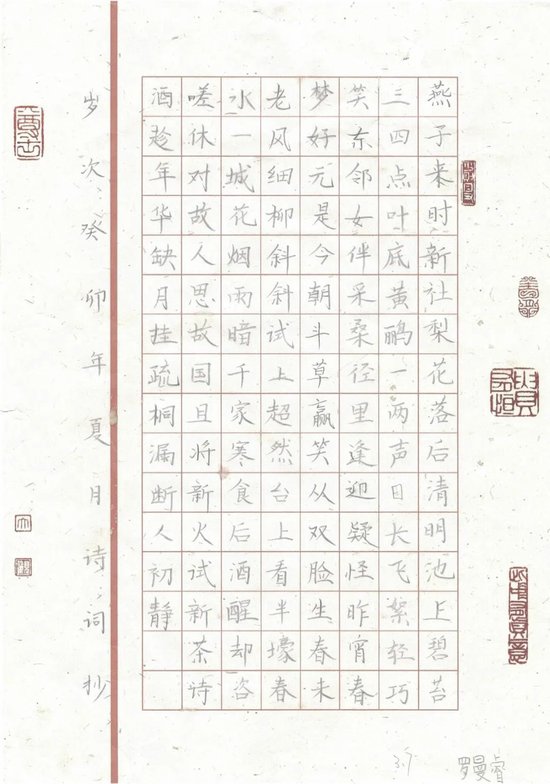 燕子来时新社梨花落后清明池上碧苔
三四点叶底黄鹂一两声日长飞絮轻巧
笑东邻女伴采桑径里逢迎疑怪昨宵春
梦好元是今朝斗草赢笑从双脸生春未
老风细柳斜斜试上超然台上看半壕春
水一城花烟雨暗千家寒食后酒醒却咨
嗟休对故人思故国且将新火试新茶诗
酒趁年华缺月挂疏桐漏断人初静
岁次癸卯年夏月诗词抄
罗曼睿